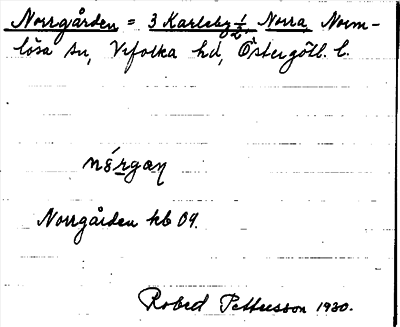 Norrgården = 3 Karleby 1/2, Norra, Norm-
lösa sn, Vifolka hd, Östergötl. l.
Norrgården kb 09.
Robed Pettersson 1930.